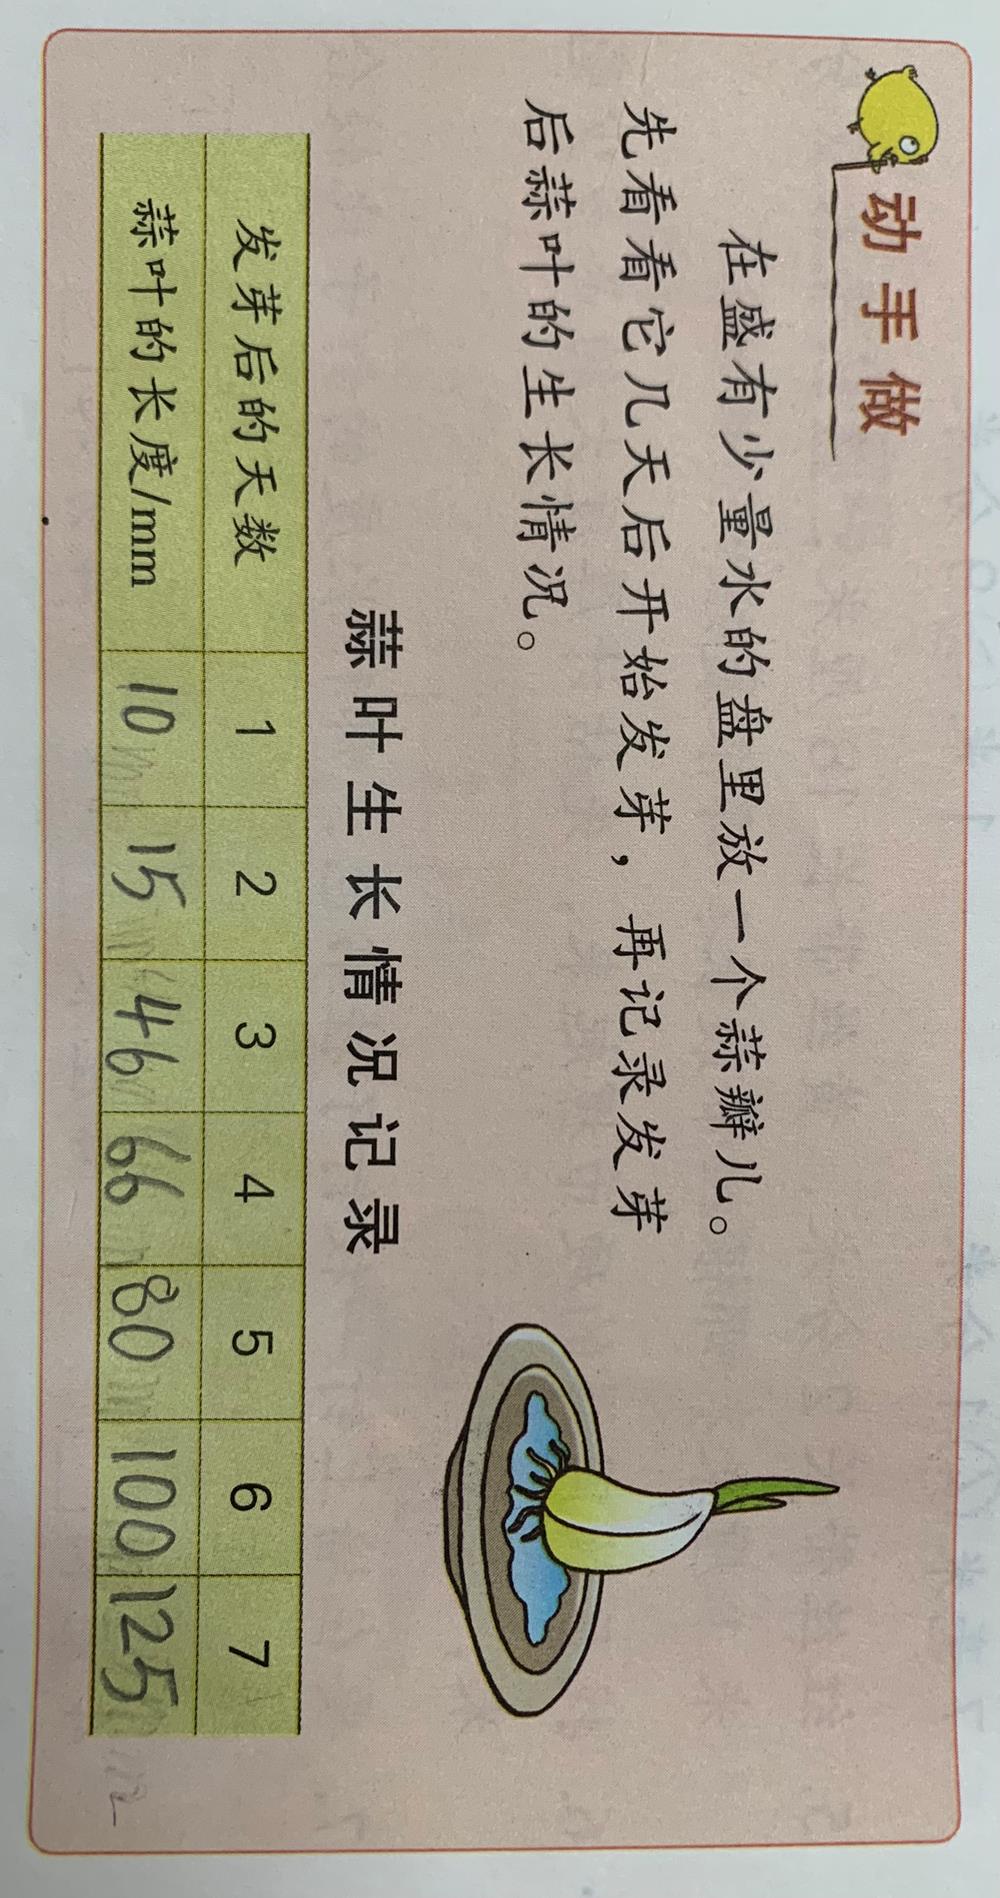 动手做
在盛有少量水的盘里放一个蒜瓣儿。
先看看它几天后开始发芽，再记录发芽
后蒜叶的生长情况。
蒜叶生长情况记录
发芽后的天数 1 2 3 4 5 6 7
蒜叶的长度/mm 10 15 46 66 80 100 125